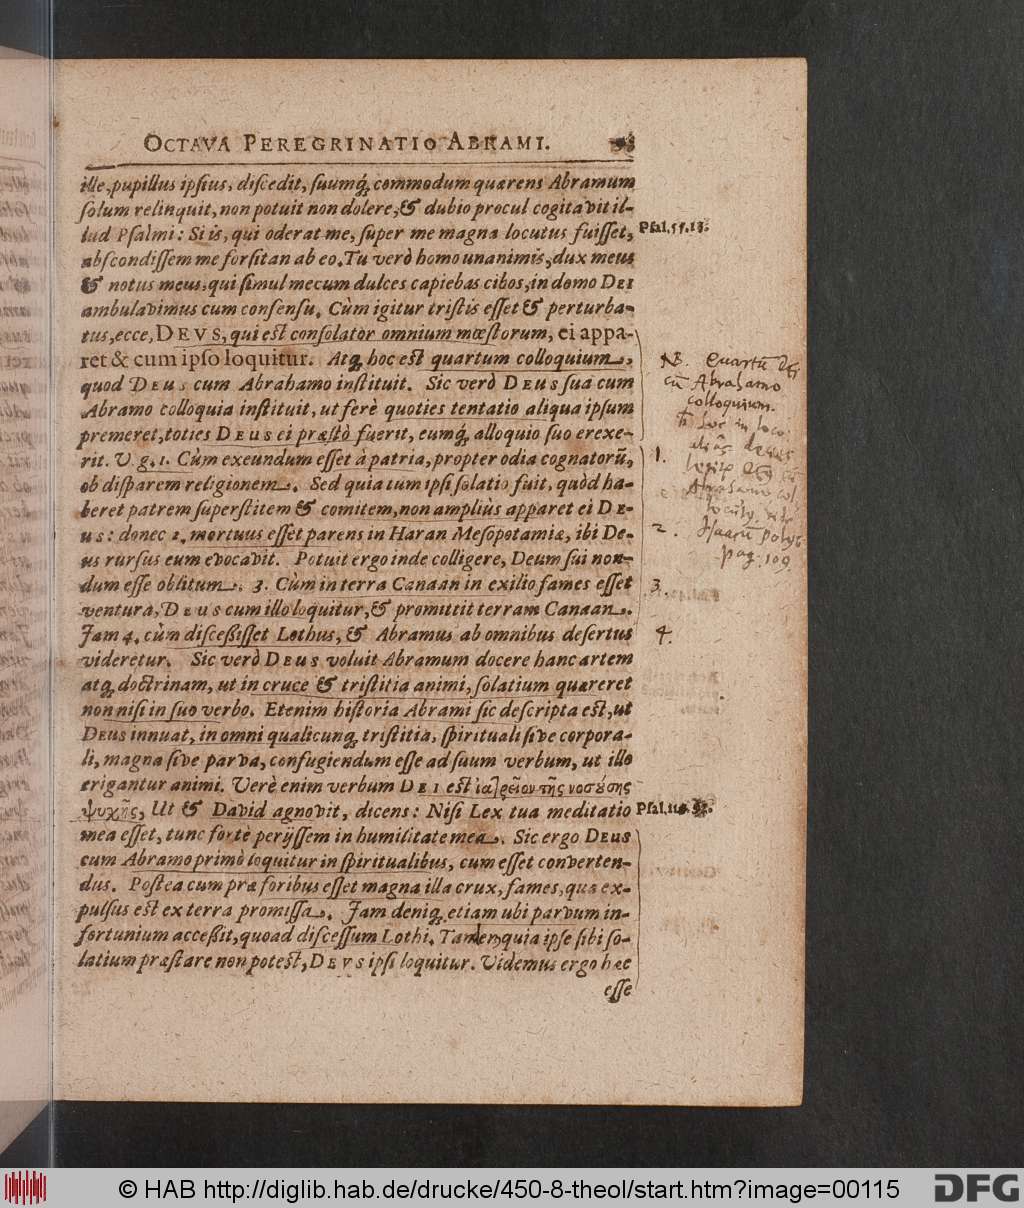 OCTAVA PEREGRINATIO ABRAMI.
ille, pupillus ipsius, discedit, suumq́; commodum quærens Abramum
solum relinquit, non potuit non dolere, & dubio procul cogitavit il-
lud Psalmi: Si is, qui oderat me, super me magna locutus fuisset, Psal.55.13.
abscondissem me forsitan ab eo. Tu verò homo unanimis, dux meus
& notus meus, qui simul mecum dulces capiebas cibos, in domo DEI
ambulavimus cum consensu. Cùm igitur tristis esset & perturba-
tus, ecce, DEVS, qui est consolator omnium mœstorum, ei appa-
ret & cum ipso loquitur. Atq́; hoc est quartum colloquium,
quod DEUS cum Abrahamo instituit. Sic verò DEUS sua cum
Abramo colloquia instituit, ut ferè quoties tentatio aliqua ipsum
premeret, toties DEUS ei præstò fuerit, eumq́; alloquio suo erexe-
rit. V. g. 1. Cùm exeundum esset à patria, propter odia cognatorũ,
ob disparem religionem. Sed quia tum ipsi solatio fuit, quòd ha-
beret patrem superstitem & comitem, non ampliùs apparet ei DE-
US: donec 2. mortuus esset parens in Haran Mesopotamiæ, ibi De-
us rursus eum evocavit. Potuit ergo inde colligere, Deum sui non-
dum esse oblitum. 3. Cùm in terra Canaan in exilio fames esset
ventura, DEUS cum illo loquitur, & promittit terram Canaan.
Jam 4. cùm discessisset Lothus, & Abramus ab omnibus desertus
videretur. Sic verò DEUS voluit Abramum docere hanc artem
atq́; doctrinam, ut in cruce & tristitia animi, solatium quæreret
non nisi in suo verbo. Etenim historia Abrami sic descripta est, ut
DEUS innuat, in omni qualicunq́; tristitia, spirituali sive corpora-
li, magna sive parva, confugiendum esse ad suum verbum, ut illo
erigantur animi. Verè enim verbum DEI est ἰατρεῖον τῆς νοσούσης
ψυχῆς, Ut & David agnovit, dicens: Nisi Lex tua meditatio
mea esset, tunc fortè perijssem in humilitate mea. Sic ergo DEUS
cum Abramo primò loquitur in spiritualibus, cum esset converten-
dus. Postea cum præ foribus esset magna illa crux, fames, qua ex-
pulsus est ex terra promissa. Jam deniq́; etiam ubi parvum in-
fortunium accessit, quoad discessum Lothi. Tamen, quia ipse sibi so-
latium præstare non potest, DEVS ipsi loquitur. Videmus ergo hæc
esse
NB. Quartũ Dei
cũ Abrahamo
colloquium.
1.
2.
pag. 109
3.
4.
© HAB http://diglib.hab.de/drucke/450-8-theol/start.htm?image=00115
DFG